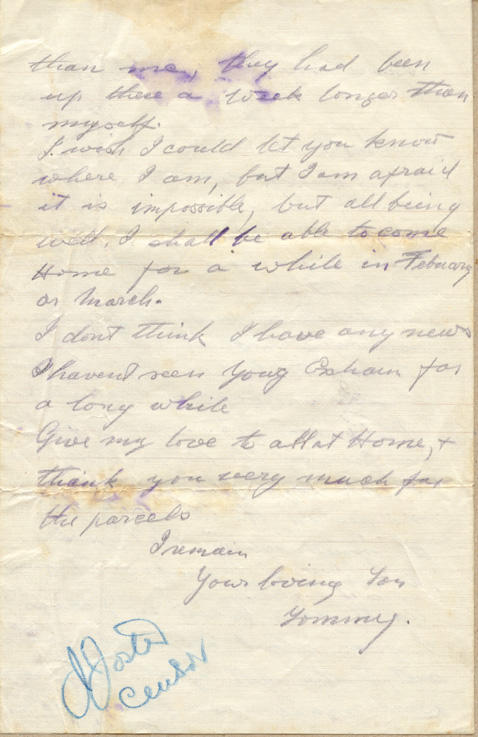 than me, they had been
up there a week longer than
myself.
I wish I could let you know
where I am, but I am afraid
it is impossible, but all being
well, I shall be able to come
Home for a while in February
or March.
I don't think I have any news
I havent seen Young for
a long while
Give my love to all at Home, +
thank you very much for
the parcels
I remain
Your loving Son
Tommy.
Censor